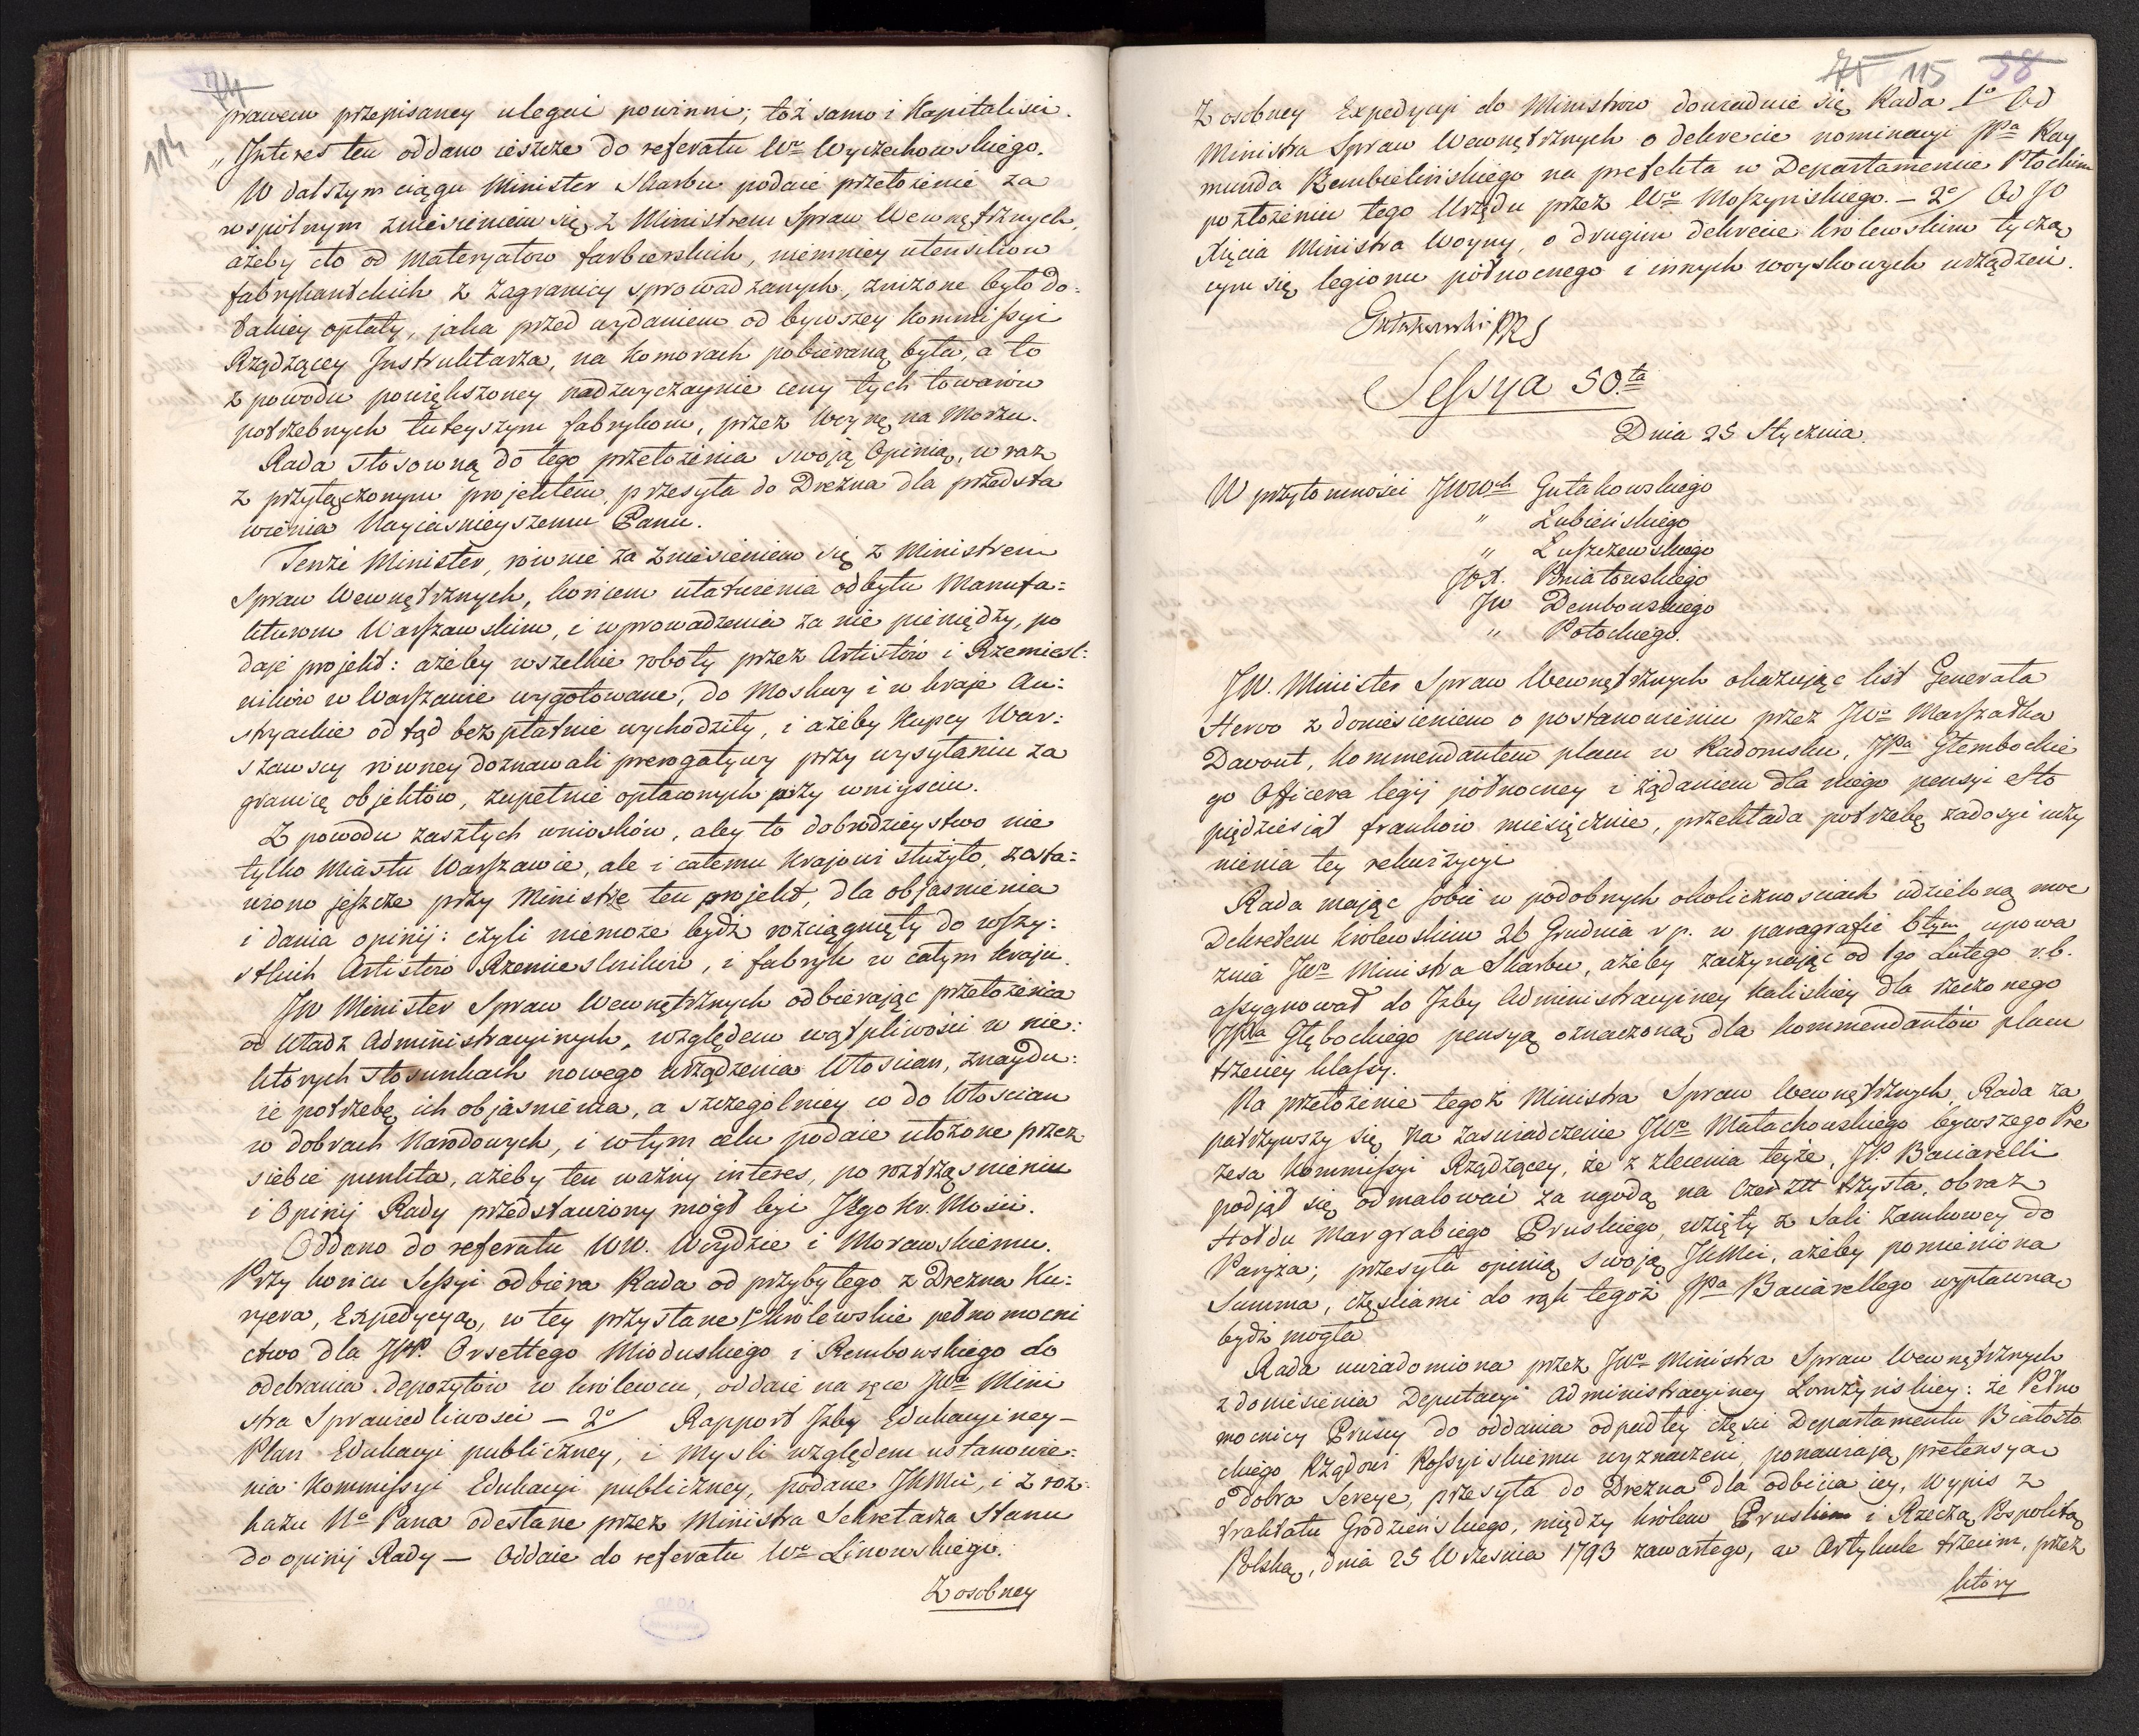 74
114
prawem przepisaney ulegać powinni; toż samo i Kapitaliści.
„ Interes ten oddano ieszcze do referatu Wo Wyczechowskiego.
W dalszym ciągu Minister Skarbu podaie przełożenie za
wspólnym zniesieniem się z Ministrem Spraw Wewnętrznych,
ażeby cło od materyałów farbierskich, niemniey utensiliow
fabrykantckich z zagranicy sprowadzanych, zniżone było do
takiey opłaty, jaka przed wydaniem od bywszey Kommissyi
Rządzącey Instruktarza, na komorach pobieraną była, a to
z powodu powiększoney nadzwyczaynie ceny tych towarów
potrzebnych tuteyszym fabrykom, przez Woynę na Morzu.
Rada stosowną do tego przełożenia swoją Opinią, wraz
z przyłączonym projektem, przesyła do Drezna dla przedsta
wienia Nayiaśnieyszemu Panu.
Tenże Minister, równie za zniesieniem się z Ministrem
Spraw Wewnętrznych, końcem ułatwienia odbytu Manufa=
kturom Warszawskim, i wprowadzenia za nie pieniędzy, po
daje projekt: ażeby wszelkie roboty przez Artistów i Rzemieśl=
ników w Warszawie wygotowane, do Moskwy i w kraje Au=
stryackie odtąd bezpłatnie wychodziły, i ażeby Kupcy War=
szawscy równey doznawali prerogatywy przy wysyłaniu za
granicę objektów, zupełnie opłaconych przy wniyściu.
Z powodu zaszłych wniosków, aby to dobrodzieystwo nie
tylko Miastu Warszawie, ale i całemu Krajowi służyło, zosta=
wiono jeszcze przy Ministrze ten projekt, dla objaśnienia
i dania opinij: czyli niemoże bydź rozciągnięty do wszy=
stkich Artistów Rzemieslników, i fabryk w całym kraju.
JW Minister Spraw Wewnętrznych odbierając przełożenia
od Władz Administracyinych, względem wątpliwości w nie=
których stosunkach nowego urządzenia Włościan, znaydu=
ie potrzebę ich objaśnienia, a szczególniey co do Włościan
w dobrach Narodowych, i w tym celu podaie ułożone przez
siebie punkta, ażeby ten ważny interes, po roztrząśnieniu
i Opinij Rady przedstawiony mógł być JKgo Kr. Mości.
Oddano do referatu WW. Woydzie i Morawskiemu.
Przy końcu Sessyi odbiera Rada od przybyłego z Drezna Ku=
ryera, Expedycyą, w tey przysłane 1o królewskie pełnomocni
ctwo dla JPP. Orsettego Mioduskiego i Rembowskiego do
odebrania depozytów w królewcu, oddaie na ręce JWo Mini
stra Sprawiedliwości — 2o/ Rapport Izby Edukacyiney —
Plan Edukacyi publiczney, i Myśli względem ustanowie=
nia Kommissyi Edukacyi publiczney, podane JKMci, i z roz=
kazu No Pana odesłane przez Ministra Sekretarza Stanu
do opinij Rady — Oddaie do referatu Wo Linowskiego.
Z osobney
75 115 58
Z osobney Expedycyi do Ministrów dowiaduie się Rada 1o Od
Ministra Spraw Wewnętrznych o dekrecie nominacyi JPa Ray
munda Rembielińskiego na prefekta w Departamencie Płockim
po złożeniu tego Urzędu przez Wo Moszyńskiego. — 2o/ Od JO
Xięcia Ministra Woyny, o drugim dekrecie królewskim tyczą
cym się legionu północnego i innych woyskowych urządzeń.
Gutakowski PRS
Sessya 50.ta
Dnia 25 Stycznia.
W przytomności JWWch Gutakowskiego
" Łubieńskiego
" Łuszczewskiego
JOX. Poniatowskiego
JW Dembowskiego
" Potockiego.
JW. Minister Spraw Wewnętrznych okazując list Generała
Hervo z doniesieniem o postanowieniu przez JWo Marszałka
Davout, Kommendantem placu w Radomsku, JPa Głembockie
go Officera legij północney i żądaniem dla niego pensyi sto
pięćdziesiąt franków miesięcznie, przekłada potrzebę zadosyć uczy
nienia tey rekwizycyi
Rada mając sobie w podobnych okolicznościach udzieloną moc
Dekretem królewskim 26 Grudnia r p. w paragrafie 6tym upowa
żnia JWo Ministra Skarbu, ażeby zaczynając od 1go Lutego r.b.
assygnował do Izby Administracyiney Kaliskiey dla rzeczonego
JPa Głębockiego pensyą oznaczoną dla kommendantów placu
trzeciey klassy.
Na przełożenie tegoż Ministra Spraw Wewnętrznych, Rada za
patrzywszy się na zaświadczenie JWo Małachowskiego bywszego Pre
zesa Kommissyi Rządzącey, że z zlecenia teyże, JP. Baciarelli
podjął się odmalować za ugodą na Czer Złł trzysta, obraz
Hołdu Margrabiego Pruskiego, wzięty z Sali Zamkowey do
Paryża; przesyła opinią swoją JKMci, ażeby pomieniona
Summa, częściami do rąk tegoż JPa Baciarellego wypłacona
bydź mogła
Rada uwiadomiona przez JWo Ministra Spraw Wewnętrznych
z doniesienia Deputacyi Administracyiney Łomżyńskiey: że Pełno
mocnicy Pruscy do oddania odpadłey części Departamentu Białosto
ckiego Rządowi Rossyiskiemu wyznaczeni, ponawiają pretensya
o dobra Sereye, przesyła do Drezna dla odbicia iey, wypis z
traktatu Grodzieńskiego, między królem Pruskim i Rzecząpospolitą
Polską, dnia 25 Września 1793 zawartego, w Artykule trzecim, przez
który